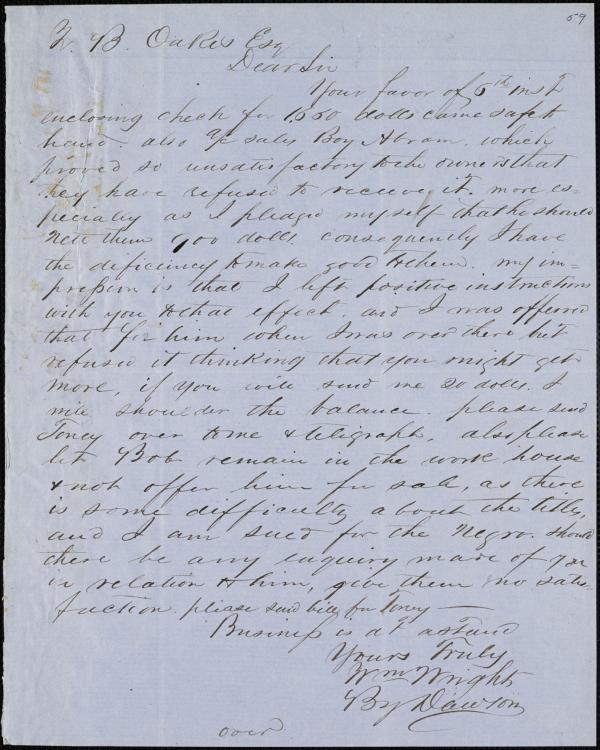 59
Z. B. Oakes Esq
Dear Sir
Your favor of 6th inst
enclosing check for 1550 dolls came safe to
hand. also a/c sales Boy Abram. which
proved so unsatisfactory to the owners that
they have refused to receive it. more es=
pecially as I pledged myself that he should
nett them 900 dolls. consequently I have
the dificiency to make good to them. my im=
pression is that I left positive instructions
with you to that effect. and I was offerred
that for him when I was over there but
refused it thinking that you might get
more, if you will send me 20 dolls. I
will shoulder the balance. please send
Toney over to me & teligraph, also please
let Bob remain in the work house
& not offer him for sale, as there
is some difficulty about the titles,
and I am sued for the Negro. should
there be any enquiry made of you
in relation to him, give them no satis-
faction. please send bill for Toney —
Business is at a stand
Yours Truly
Wm Wright
By Dawson
over